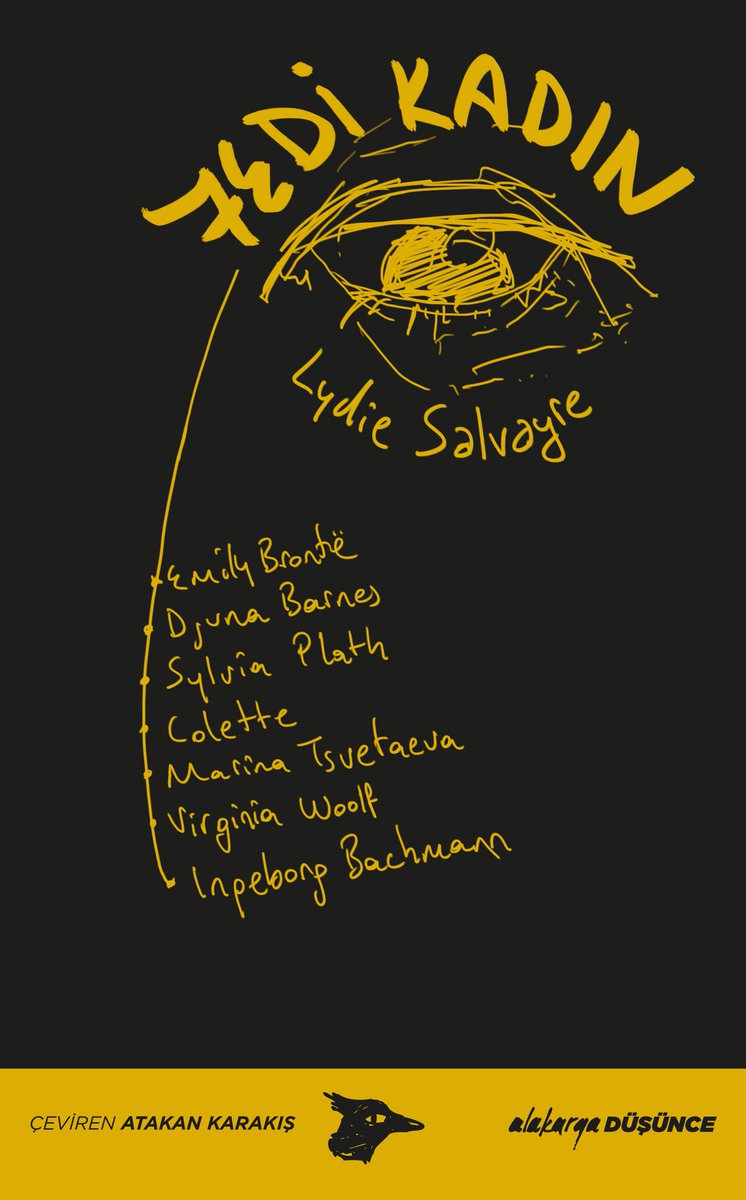 7EDİ KADIN
Lydie Salvayre
Emily Brontë
Djuna Barnes
Sylvia Plath
Colette
Marina Tsvetaeva
Virginia Woolf
Ingeborg Bachmann
ÇEVİREN ATAKAN KARAKIŞ
alakarga DÜŞÜNCE